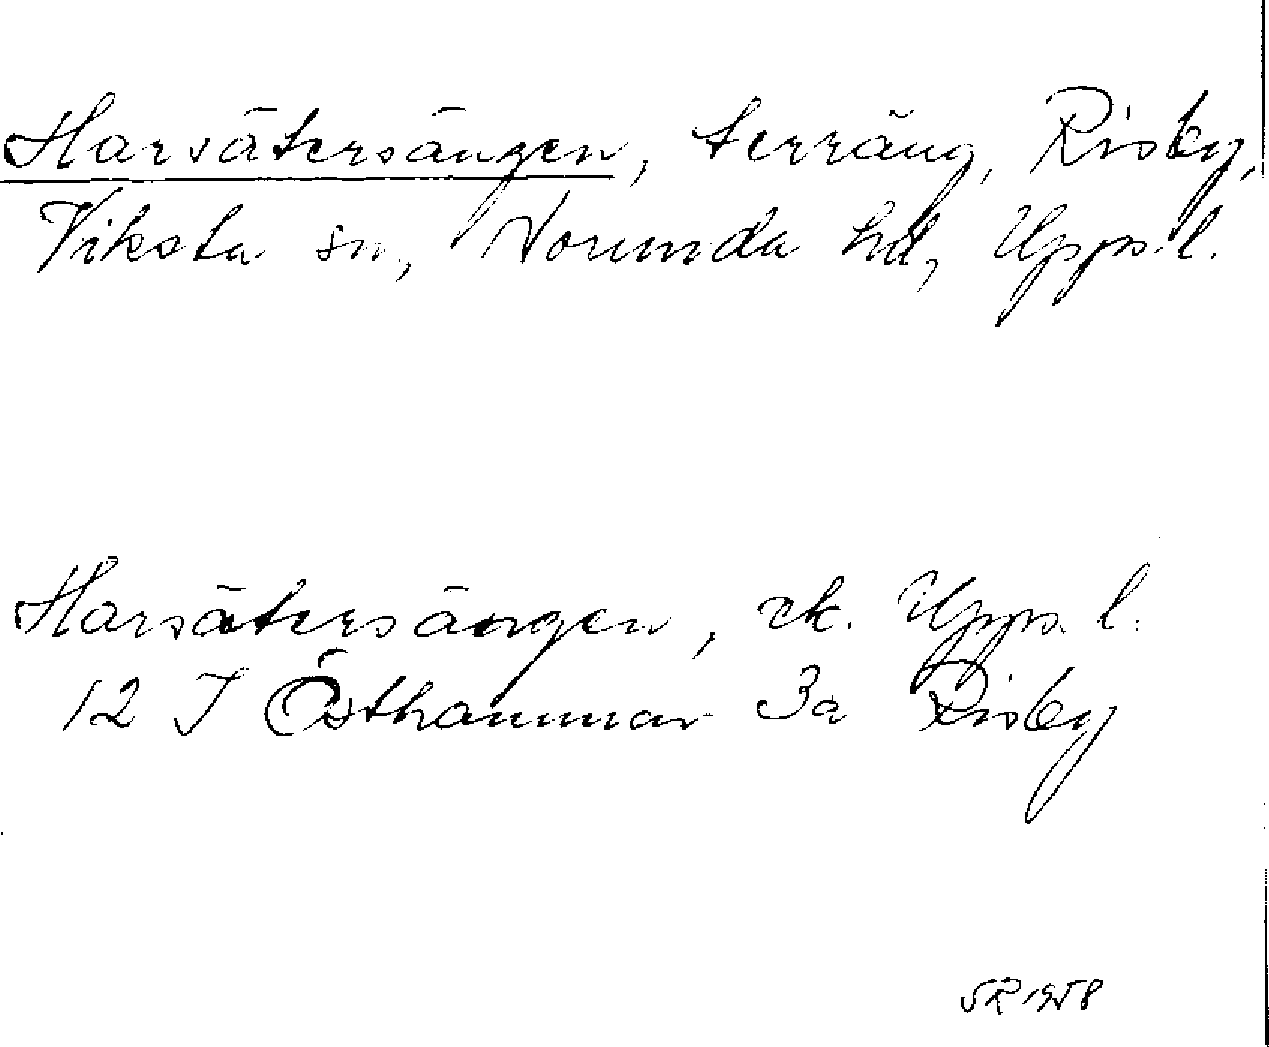 Harsätersängen, terräng, Risby,
Viksta sn, Norunda hd, Uppl.
Harsätersängen, ek. Uppl.
12 I Östhammar 3a Risby
SR 1958